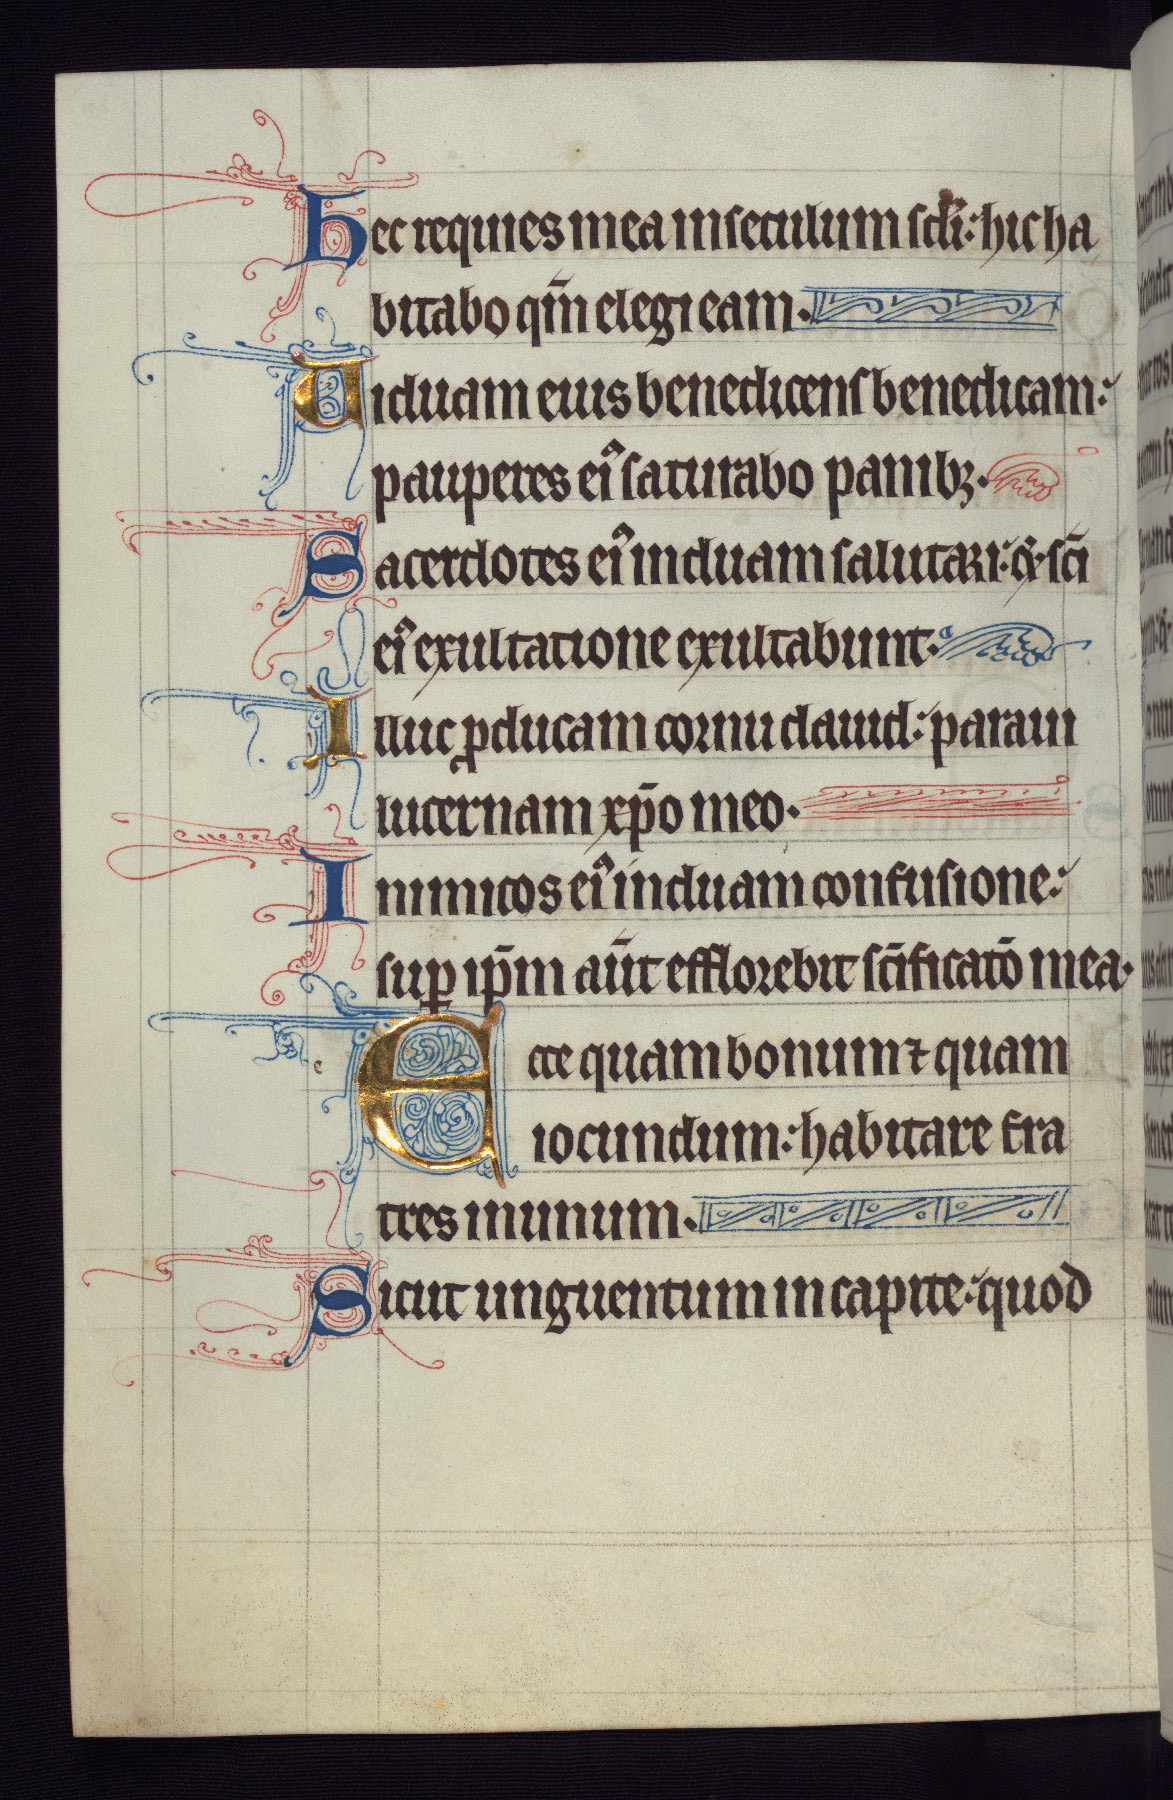 Hec requies mea in seculum scłi: hic ha
bitabo qm̄ elegi eam.
Uiduam eius benedicens benedicam:
pauperes ei᾽ saturabo panibꝫ.
Sacerdotes ei᾽ induam salutari: ⁊ sc̄i
ei᾽ exultatione exultabunt.
Illuc ꝓducam cornu dauid: paraui
lucernam xp̄o meo.
Inimicos ei᾽ induam confusione:
suꝑ ip̄m aūt efflorebit sc̄ificatō mea.
Ecce quam bonum ⁊ quam
iocundum: habitare fra
tres in unum.
Sicut unguentum in capite: quod